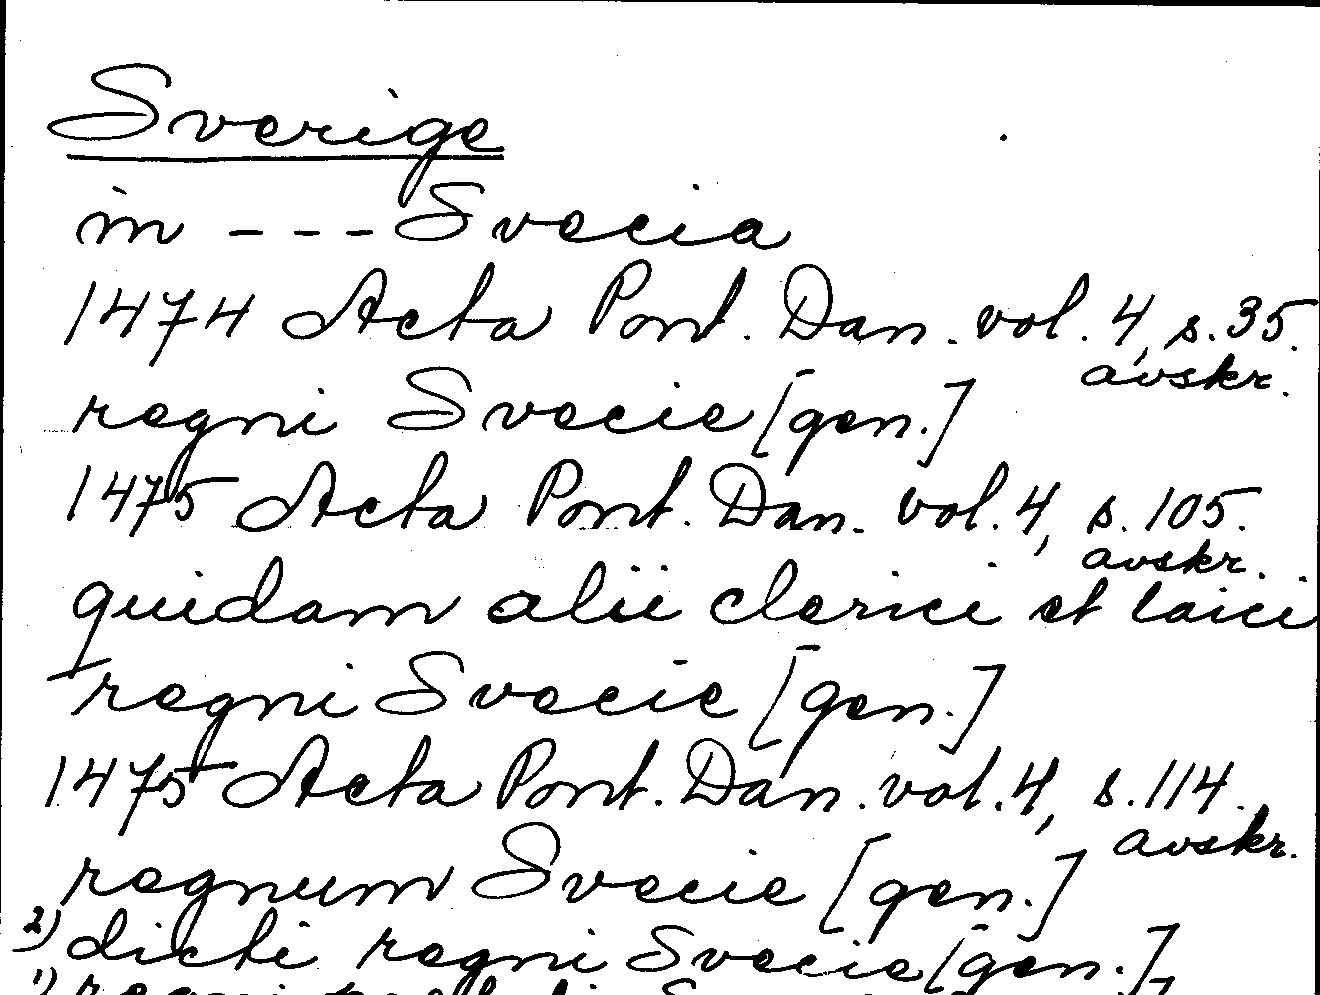 Sverige
in --- Svecia
1474 Acta Pont. Dan. vol. 4, s. 35.
avskr.
regni Svecie [gen.]
1475 Acta Pont. Dan. vol. 4, s. 105.
avskr.
quidam alii clerici et laici
regni Svecie [gen.]
1475 Acta Pont. Dan. vol. 4, s. 114.
avskr.
regnum Svecie [gen.]
2) dicti regni Svecie [gen.]
1) regni